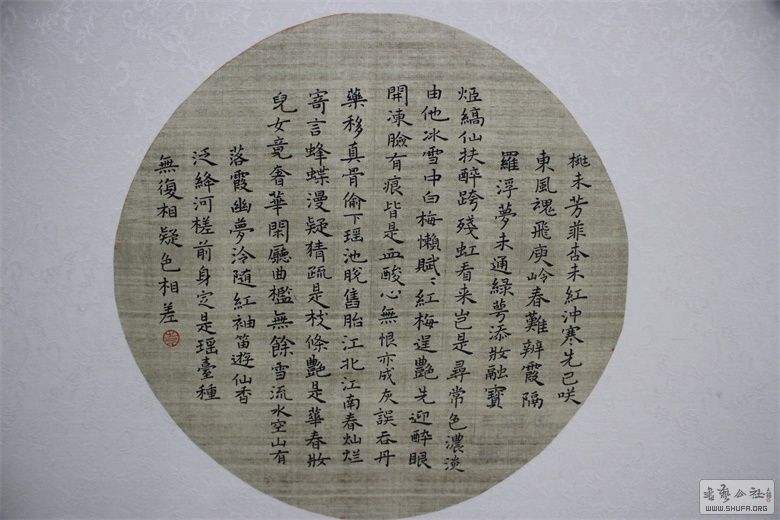 桃未芳菲杏未紅沖寒先已咲
東風魂飛庾岭春難辨霞隔
羅浮夢未通綠萼添妝融寶
炬縞仙扶醉跨殘虹看来岂是尋常色濃淡
由他冰雪中白梅懶賦〻紅梅逞艷先迎醉眼
開凍臉有痕皆是血酸心無恨亦成灰誤吞丹
藥移真骨偷下瑶池脫舊胎江北江南春灿烂
寄言蜂蝶漫疑猜疏是枝條艷是華春妝
兒女竟奢華閑廳曲檻無餘雪流水空山有
落霞幽夢冷隨紅袖笛遊仙香
泛絳河槎前身定是瑶臺種
無復相疑色相差
WWW.SHUFA.ORG